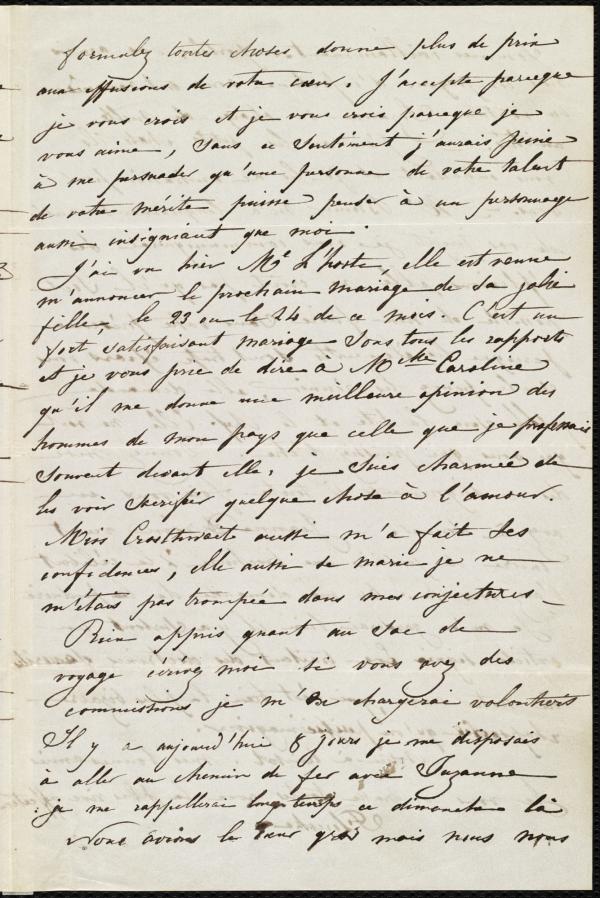 formulez toutes choses donne plus de prix
aux effusions de votre cœur. J'accepte parceque
je vous crois et je vous crois parceque je
vous aime, sans ce sentiment j'aurais peine
à me persuader qu'une personne de votre talent
de votre mérite puisse penser à un personnage
aussi insigniant que moi.
J'ai vu hier Me L'hoste, elle est venue
m'annoncer le prochain mariage de sa jolie
fille le 23 ou le 24 de ce mois. C'est un
fort satisfaisant mariage sous tous les rapports
et je vous prie de dire à Mlle Caroline
qu'il me donne une meilleure opinion des
hommes de mon pays que celle que je professais
souvent devant elle, je suis charmée de
les voir sacrifier quelque chose à l'amour.
Miss Crosthwait aussi m'a fait ses
confidences, elle aussi se marie je ne
m'étais pas trompée dans mes conjectures _
Rien appris quant au sac de
voyage écrivez moi si vous avez des
commissions je m'en chargerai volontiers
Il y a aujourd'hui 8 jours je me disposais
à aller au chemin de fer avec Suzanne
je me rappellerai longtemps ce dimanche là
Nous avions le cœur gros mais nous nous